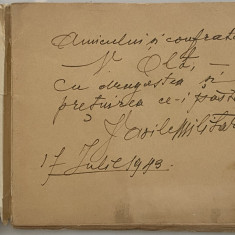 Amicului și confrate
N. Oltă, —
cu dragostea și
prețuirea ce-i păst
Vasile Militar
17 Iulie 1943.